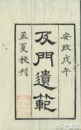 安政戊午
及門遺範
孟夏校刊